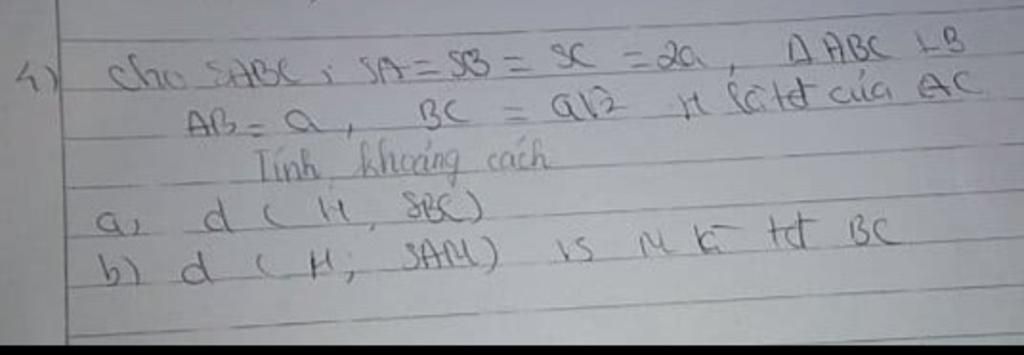 4) Cho SABC, SA = SB = SC = 2a, Δ ABC ⊥ B
AB = a, BC = a√2 H là tđ của AC
Tính khoảng cách
a, d ( H, SBC)
b) d ( H, SAM) M là tđ BC